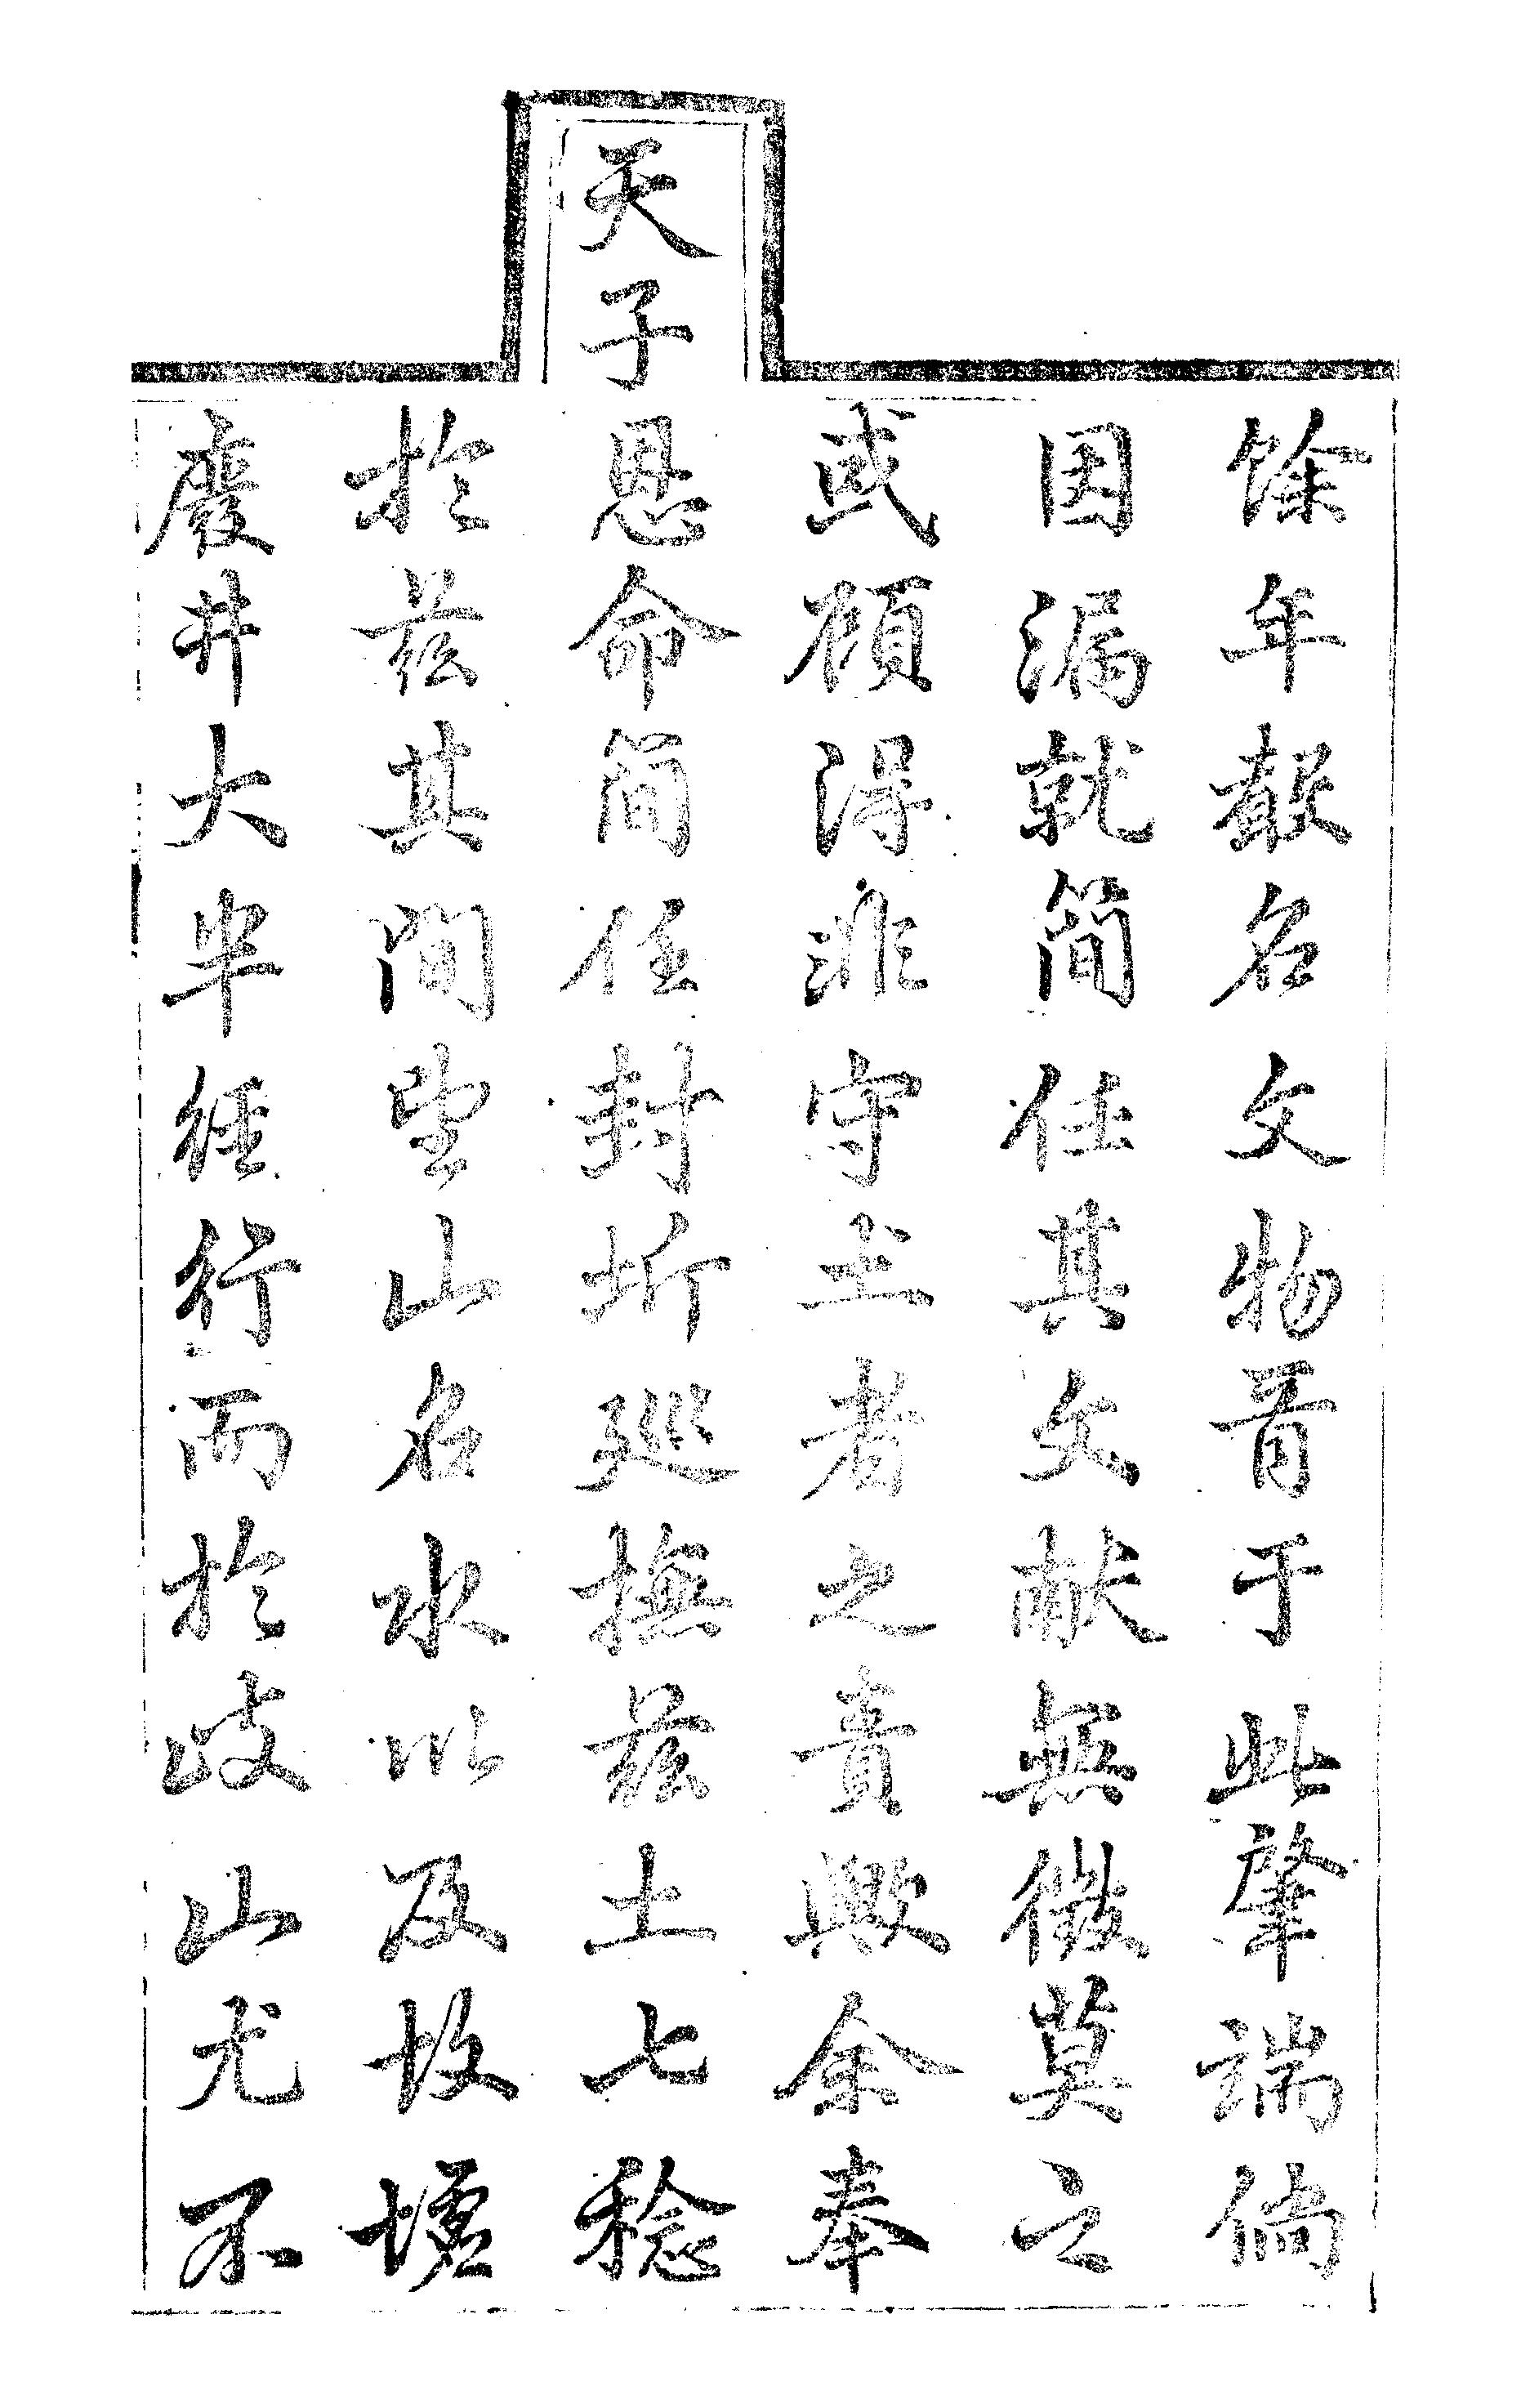 餘年聲名文物胥于此肇端倘
因漏就簡任其文献無徵莫之
或顧得非守土者之責歟余奉
天子恩命簡任封圻廵撫茲土七稔
於茲其間望山名水以及故墟
廢井大半經行而於岐山尤不